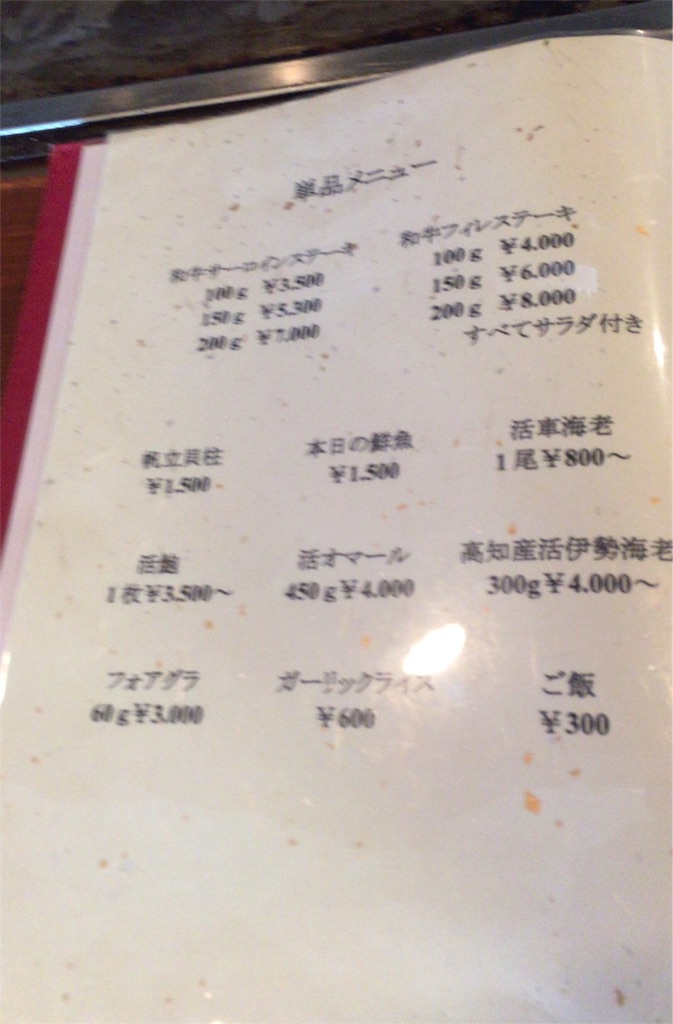 単品メニュー
和牛サーロインステーキ
100g ¥3.500
150g ¥5.300
200g ¥7.000
和牛フィレステーキ
100g ¥4.000
150g ¥6.000
200g ¥8.000
すべてサラダ付き
帆立貝柱
¥1.500
本日の鮮魚
¥1.500
活車海老
1尾¥800～
活鮑
1枚¥3.500～
活オマール
450g¥4.000
高知産活伊勢海老
300g¥4.000～
フォアグラ
60g¥3.000
ガーリックライス
¥600
ご飯
¥300